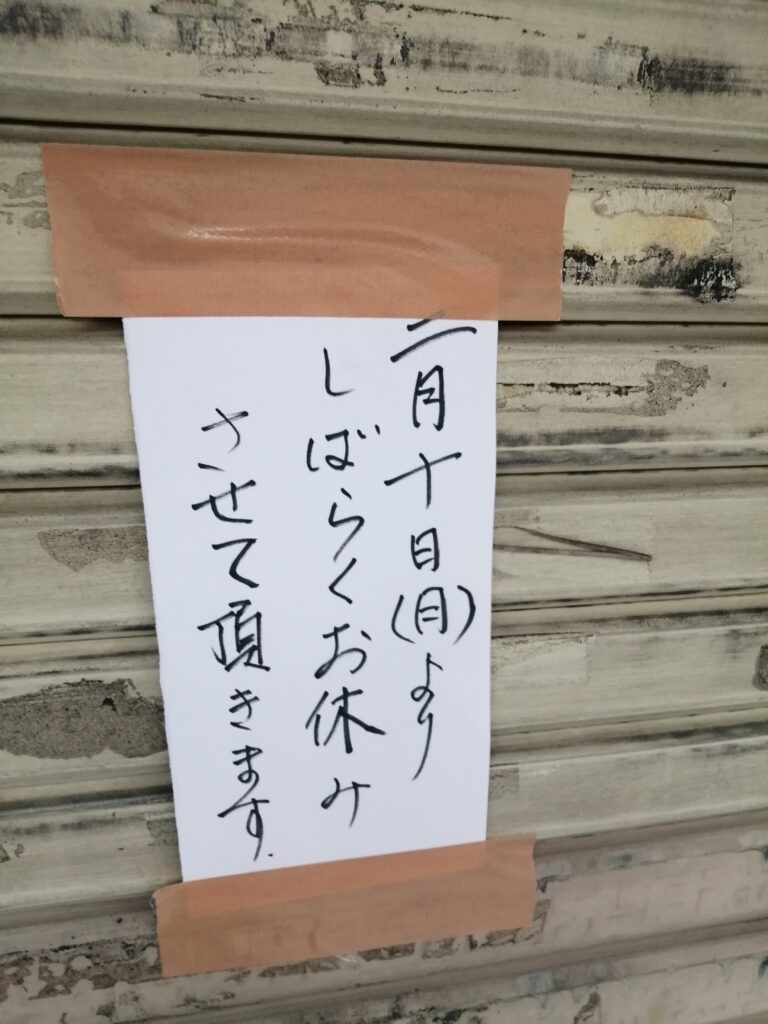 二月十日(月)より
しばらくお休み
させて頂きます.